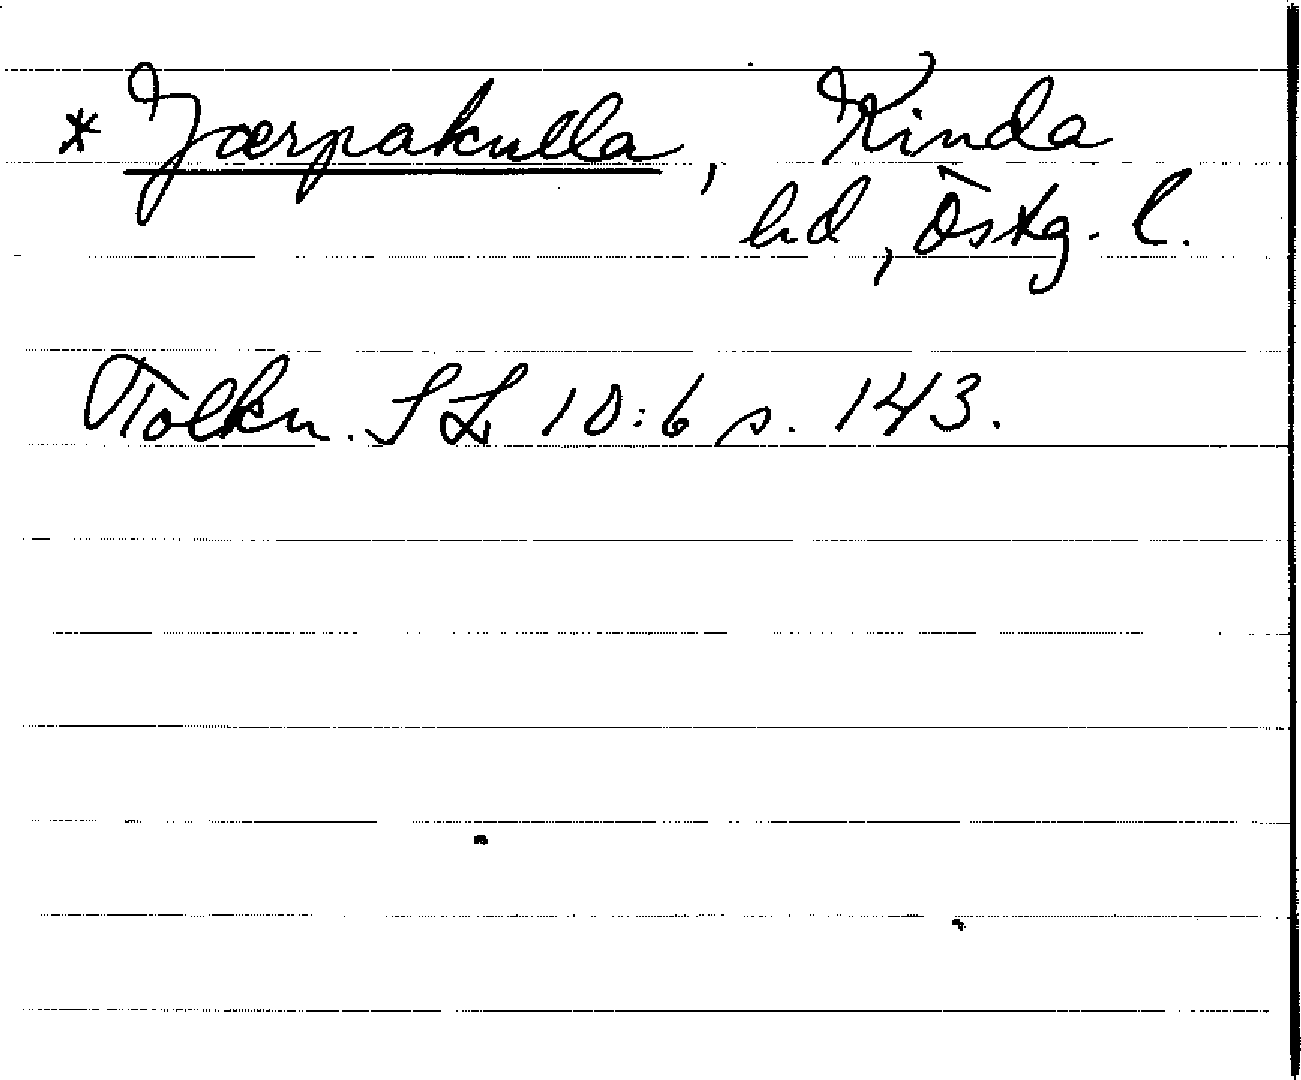 * Jærpakulla, Kinda
hd, Östg. l.
Tolkn. SL 10:6 s. 143.